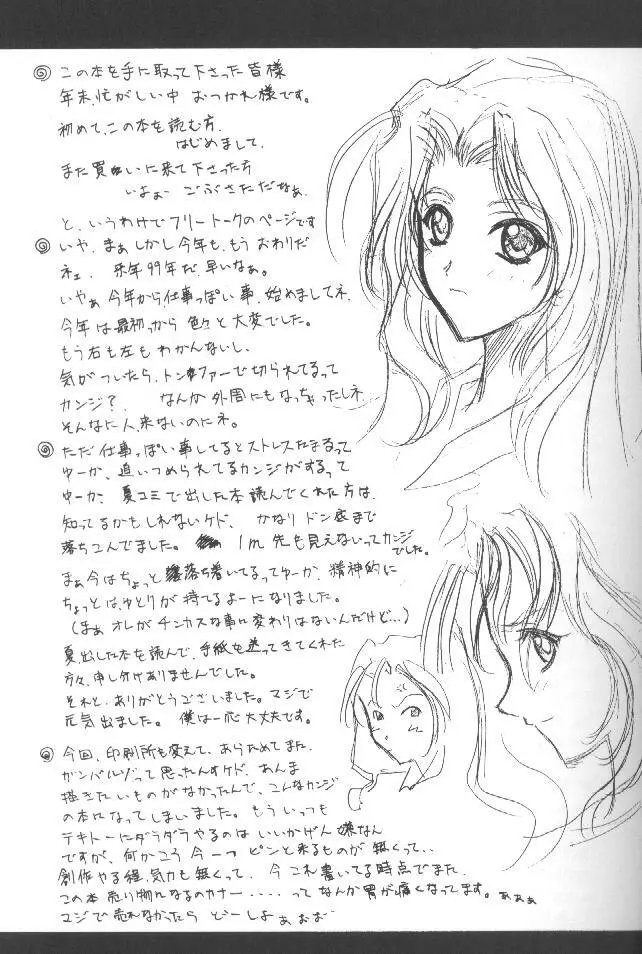 この本を手に取って下さった皆様
年末、忙がしい中 おつかれ様です。
初めて、この本を読む方、
はじめまして、
また買いに来て下さった方
いよぉー ごぶさただなぁ、
と、いうわけでフリートークのページです
いや、まぁしかし今年も、もう おわりだ
ネェ、来年99年だ 早いなぁ。
いやぁ 今年から仕事っぽい事、始めましてネ、
今年は最初っから 色々と大変でした。
もう右も左もわかんないし、
気がついたら、トンファーで切られてるって
カンジ? なんか外周にもなっちゃったしネ
そんなに人、来ないのにネ。
ただ仕事っぽい事してるとストレスたまるって
ゆーか、追いつめられてるカンジがするって
ゆーか、夏コミで出した本読んでくれた方は、
知ってるかもしれないケド、かなりドン底まで
落ちコんでました。 1m先も見えないってカンジ
でした。
まぁ今はちょっと落ち着いてるってゆーか、精神的に
ちょっとは、ゆとりが持てるよーになりました。
(まぁ オレがチンカスな事に変わりはないんだけど…)
夏、出した本を読んで、手紙を送ってきてくれた
方々、申し分けありませんでした。
それと、ありがとうございました。マジで
元気出ました。 僕は一応大丈夫です。
今回、印刷所も変えて、あらためてまた、
ガンバルゾって思ったんすケド、あんま
描きたいものがなかったんで、こんなカンジ
の本になってしまいました。もういっつも
テキトーにダラダラやるのは いいかげん嫌なん
ですが、何かこう 今一つ ピンと来るものが無くって、、
創作やる程、気力も無くって、 今 これ書いてる時点でまた、
この本 売り物になるのカナー・・・・って なんか胃が痛くなってます。ぁぁぁ
マジで売れなかったら どーしよ ぁぉぉ